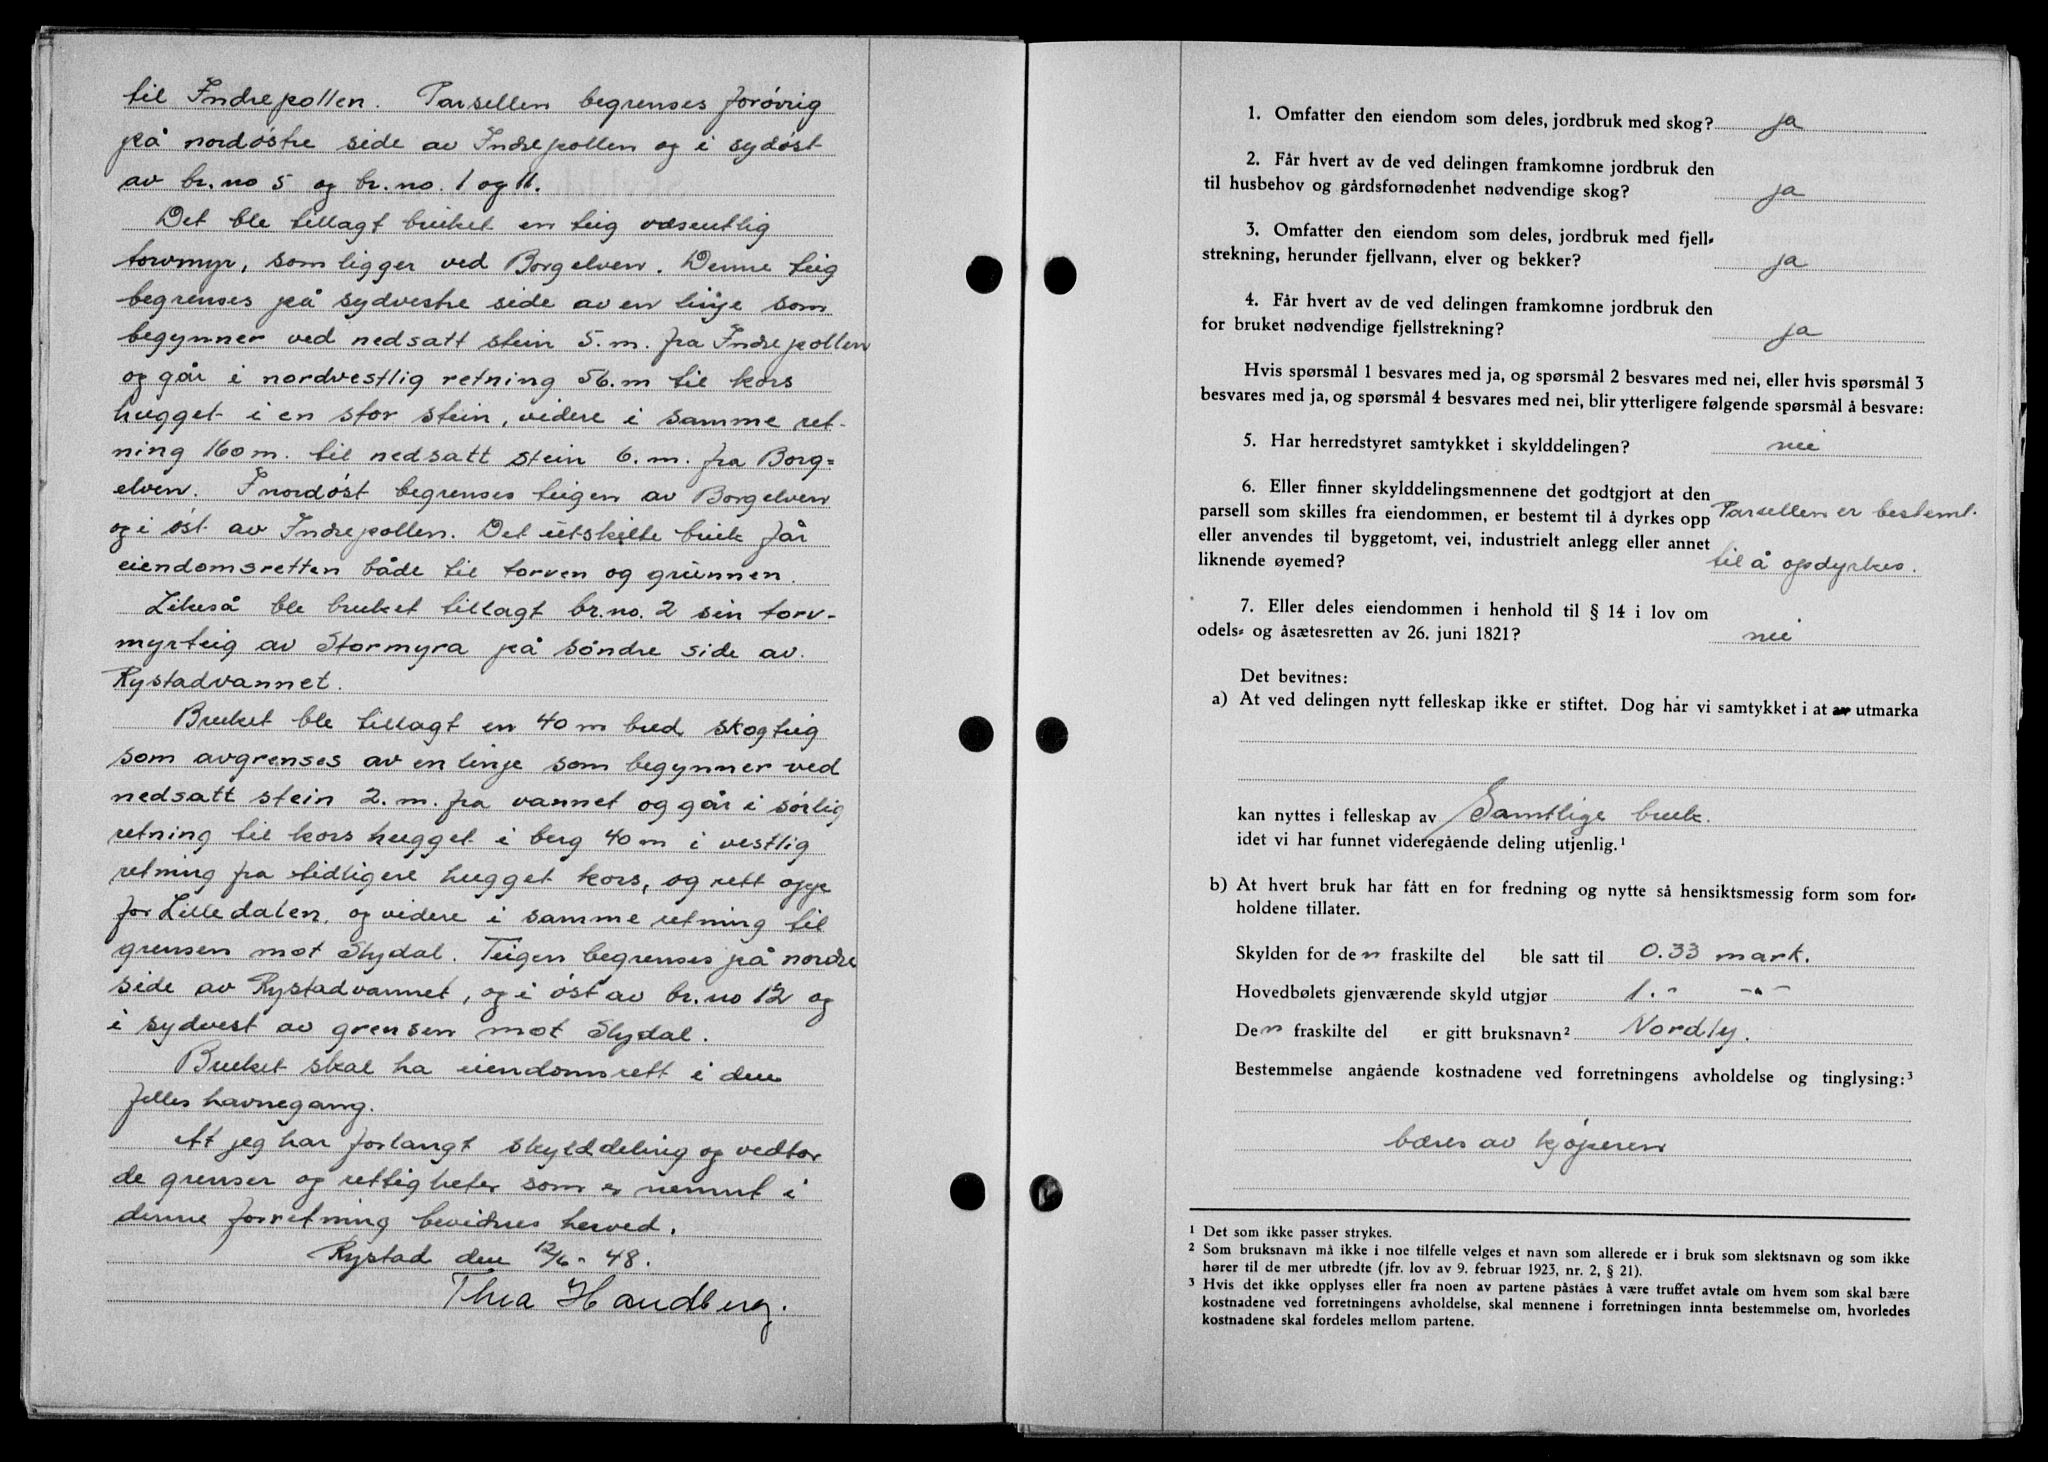 til Indrepollen. Parsellen begrenses forøvrig
på nordøstre side av Indrepollen og i sydøst
av br.no 5 og br.no. 1 og 11.
Det ble tillagt bruket en teig vesentlig
torvmyr, som ligger ved Borgelven. Denne teig
begrenses på sydvestre side av en linje som
begynner ved nedsatt stein 5.m. fra Indrepollen
og går i nordvestlig retning 56.m til kors
hugget i en stor stein, videre i samme ret-
ning 160 m. til nedsatt stein 6.m. fra Borg=
elven. I nordøst begrenses teigen av Borgelven
og i øst av Indrepollen. Det utskilte bruk får
eiendomsretten både til torven og grunnen.
Likeså ble bruket tillagt br.no. 2 sin torv-
myrteig av Stormyra på søndre side av
Rystadvannet.
Bruket ble tillagt en 40 m bred skogteig
som avgrenses av en linje som begynner ved
nedsatt stein 2.m. fra vannet og går i sørlig
retning til kors hugget i berg 40 m i vestlig
retning fra tidligere hugget kors, og rett opp
for Lilledalen, og videre i samme retning til
grensen mot Slydal. Teigen begrenses på nordre
side av Rystadvannet, og i øst av br.no 12 og
i sydvest av grensen mot Slydal.
Bruket skal ha eiendomsrett i den
felles havnegang.
At jeg har forlangt skylddeling og vedtar
de grenser og rettigheter som er nemnt i
denne forretning bevidnes herved.
Rystad den 12/6-48.
Thea Handberg.
1. Omfatter den eiendom som deles, jordbruk med skog? ja
2. Får hvert av de ved delingen framkomne jordbruk den
til husbehov og gårdsfornødenhet nødvendige skog? ja
3. Omfatter den eiendom som deles, jordbruk med fjell-
strekning, herunder fjellvann, elver og bekker? ja
4. Får hvert av de ved delingen framkomne jordbruk den
for bruket nødvendige fjellstrekning? ja
Hvis spørsmål 1 besvares med ja, og spørsmål 2 besvares med nei, eller hvis spørsmål 3
besvares med ja, og spørsmål 4 besvares med nei, blir ytterligere følgende spørsmål å besvare:
5. Har herredstyret samtykket i skylddelingen? nei
6. Eller finner skylddelingsmennene det godtgjort at den
parsell som skilles fra eiendommen, er bestemt til å dyrkes opp Parsellen er bestemt
eller anvendes til byggetomt, vei, industrielt anlegg eller annet
liknende øyemed? til å opdyrkes.
7. Eller deles eiendommen i henhold til § 14 i lov om
odels- og åsætesretten av 26. juni 1821? nei
Det bevitnes:
a) At ved delingen nytt felleskap ikke er stiftet. Dog har vi samtykket i at av utmarka
kan nyttes i felleskap av Samtlige bruk.
idet vi har funnet videregående deling utjenlig.¹
b) At hvert bruk har fått en for fredning og nytte så hensiktsmessig form som for-
holdene tillater.
Skylden for den fraskilte del ble satt til 0.33 mark.
Hovedbølets gjenværende skyld utgjør 1.- -"-
Den fraskilte del er gitt bruksnavn² Nordly.
Bestemmelse angående kostnadene ved forretningens avholdelse og tinglysing:³
bæres av kjøperen
¹ Det som ikke passer strykes.
² Som bruksnavn må ikke i noe tilfelle velges et navn som allerede er i bruk som slektsnavn og som ikke
hører til de mer utbredte (jfr. lov av 9. februar 1923, nr. 2, § 21).
³ Hvis det ikke opplyses eller fra noen av partene påståes å være truffet avtale om hvem som skal bære
kostnadene ved forretningens avholdelse, skal mennene i forretningen innta bestemmelse om, hvorledes
kostnadene skal fordeles mellom partene.